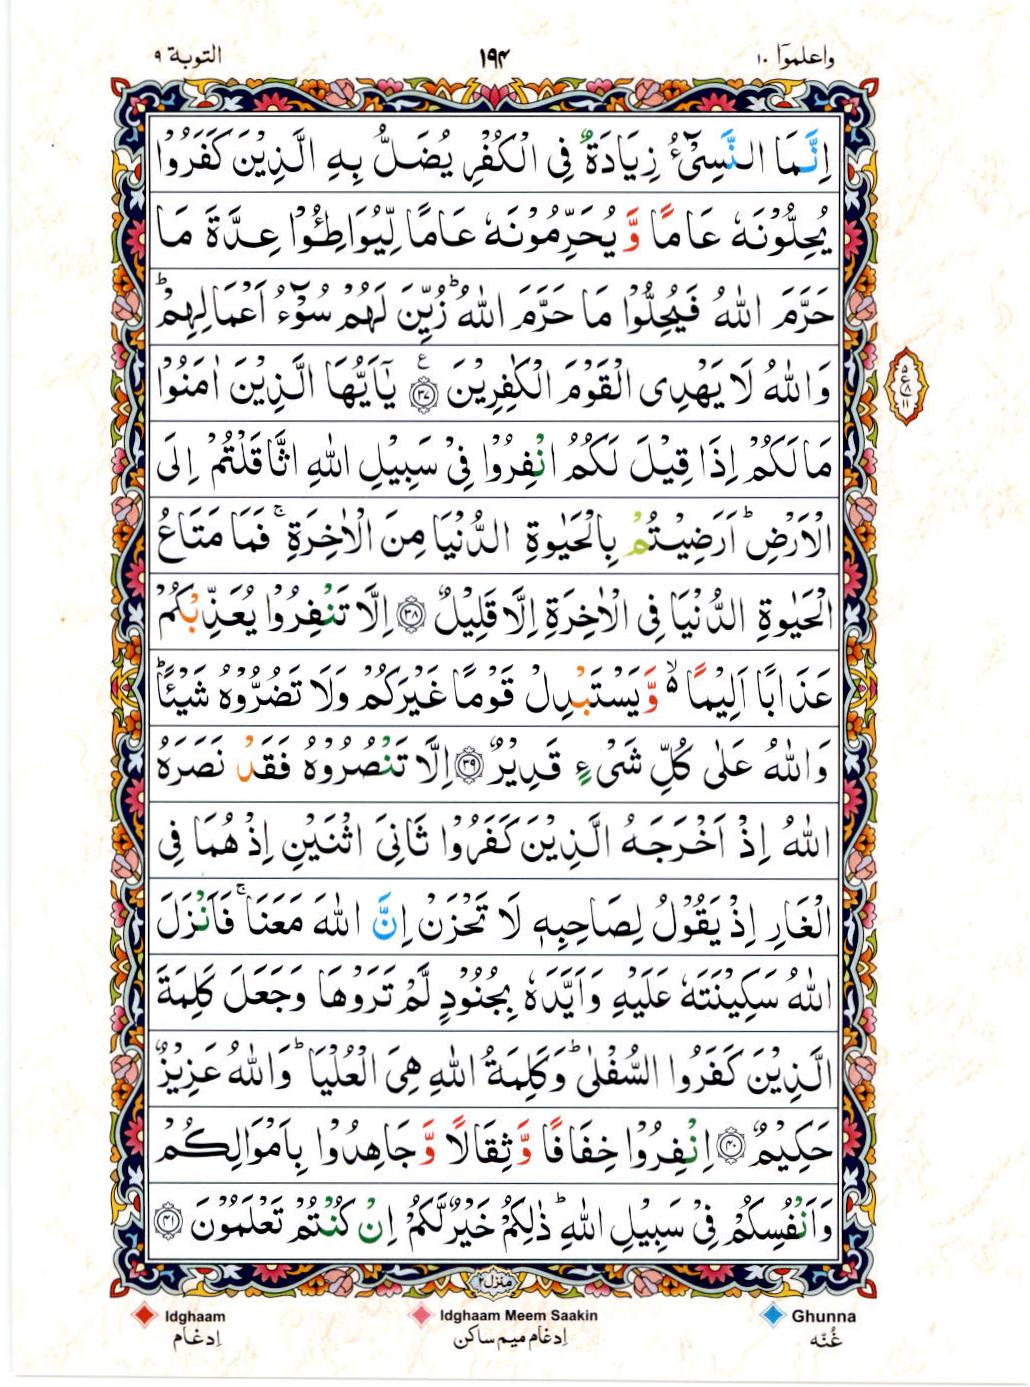 واعلموٓا ١٠
١٩۴
التوبة ٩
اِنَّمَا النَّسِیْٓءُ زِیَادَةٌ فِی الْكُفْرِ یُضَلُّ بِهِ الَّذِیْنَ كَفَرُوْا
یُحِلُّوْنَهٗ عَامًا وَّیُحَرِّمُوْنَهٗ عَامًا لِّیُوَاطِـُٔوْا عِدَّةَ مَا
حَرَّمَ اللّٰهُ فَیُحِلُّوْا مَا حَرَّمَ اللّٰهُ ؕ زُیِّنَ لَهُمْ سُوْٓءُ اَعْمَالِهِمْ ؕ
وَاللّٰهُ لَا یَهْدِی الْقَوْمَ الْكٰفِرِیْنَ ﴿۳۷﴾ ع یٰۤاَیُّهَا الَّذِیْنَ اٰمَنُوْا
مَا لَكُمْ اِذَا قِیْلَ لَكُمُ انْفِرُوْا فِیْ سَبِیْلِ اللّٰهِ اثَّاقَلْتُمْ اِلَی
الْاَرْضِ ؕ اَرَضِیْتُمْ بِالْحَیٰوةِ الدُّنْیَا مِنَ الْاٰخِرَةِ ۚ فَمَا مَتَاعُ
الْحَیٰوةِ الدُّنْیَا فِی الْاٰخِرَةِ اِلَّا قَلِیْلٌ ﴿۳۸﴾ اِلَّا تَنْفِرُوْا یُعَذِّبْكُمْ
عَذَابًا اَلِیْمًا ۙ۬ وَّیَسْتَبْدِلْ قَوْمًا غَیْرَكُمْ وَلَا تَضُرُّوْهُ شَیْـًٔا ؕ
وَاللّٰهُ عَلٰی كُلِّ شَیْءٍ قَدِیْرٌ ﴿۳۹﴾ اِلَّا تَنْصُرُوْهُ فَقَدْ نَصَرَهُ
اللّٰهُ اِذْ اَخْرَجَهُ الَّذِیْنَ كَفَرُوْا ثَانِیَ اثْنَیْنِ اِذْ هُمَا فِی
الْغَارِ اِذْ یَقُوْلُ لِصَاحِبِهٖ لَا تَحْزَنْ اِنَّ اللّٰهَ مَعَنَا ۚ فَاَنْزَلَ
اللّٰهُ سَكِیْنَتَهٗ عَلَیْهِ وَاَیَّدَهٗ بِجُنُوْدٍ لَّمْ تَرَوْهَا وَجَعَلَ كَلِمَةَ
الَّذِیْنَ كَفَرُوا السُّفْلٰی ؕ وَكَلِمَةُ اللّٰهِ هِیَ الْعُلْیَا ؕ وَاللّٰهُ عَزِیْزٌ
حَكِیْمٌ ﴿۴۰﴾ اِنْفِرُوْا خِفَافًا وَّثِقَالًا وَّجَاهِدُوْا بِاَمْوَالِكُمْ
وَاَنْفُسِكُمْ فِیْ سَبِیْلِ اللّٰهِ ؕ ذٰلِكُمْ خَیْرٌ لَّكُمْ اِنْ كُنْتُمْ تَعْلَمُوْنَ ﴿۴۱﴾
۵
ع ۸
۱۱
منزل۲
Idghaam
اِدغام
Idghaam Meem Saakin
اِدغام میم ساکن
Ghunna
غُنّه